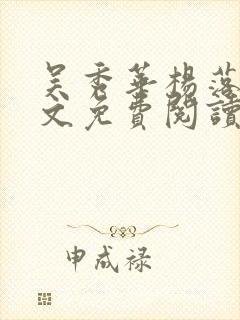 吴秀華楊落
文免費閱讀
申成禄